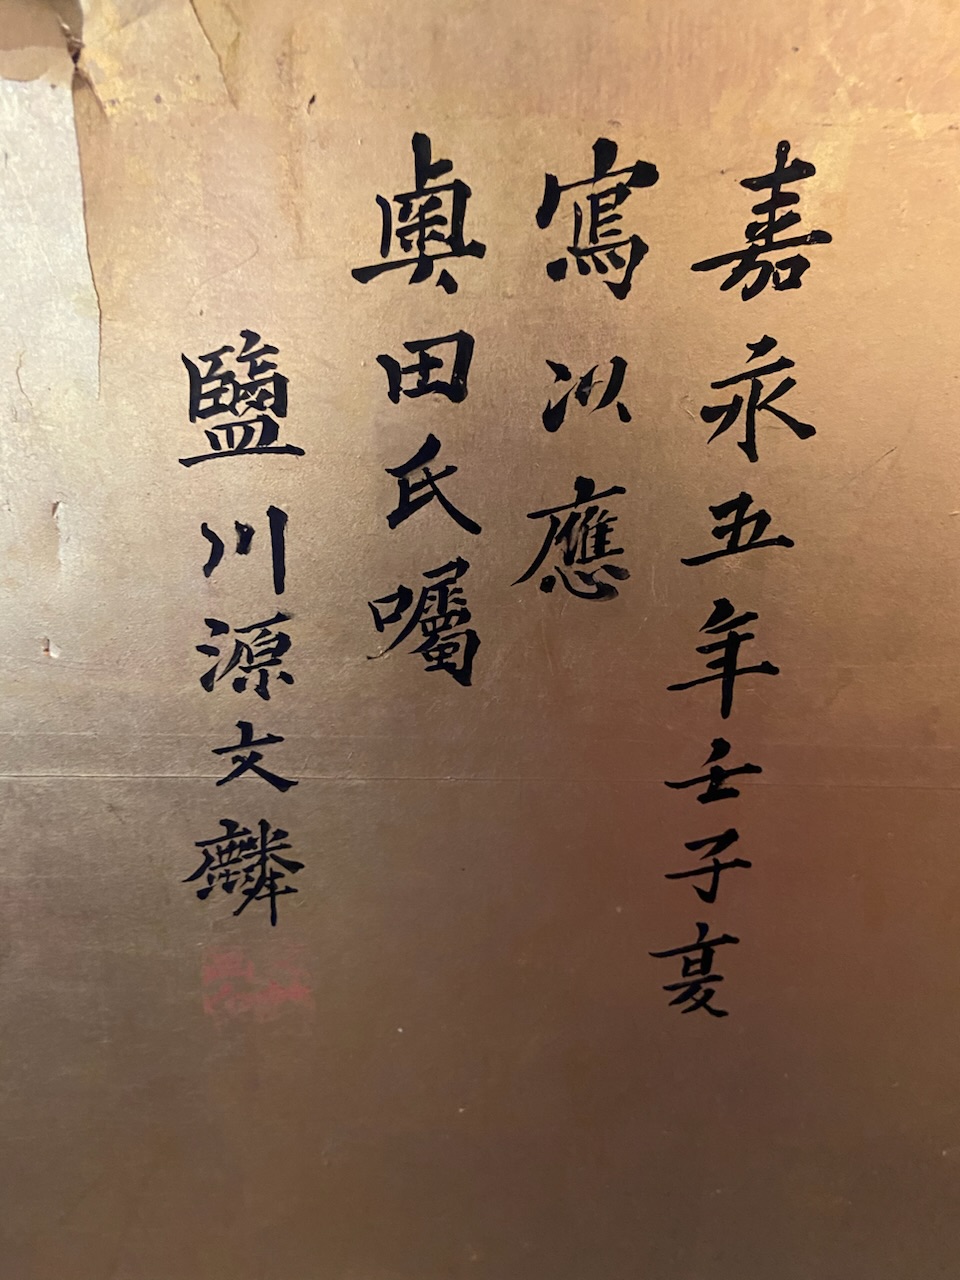 嘉永五年壬子夏
寫以應
奥田氏囑
鹽川源文麟